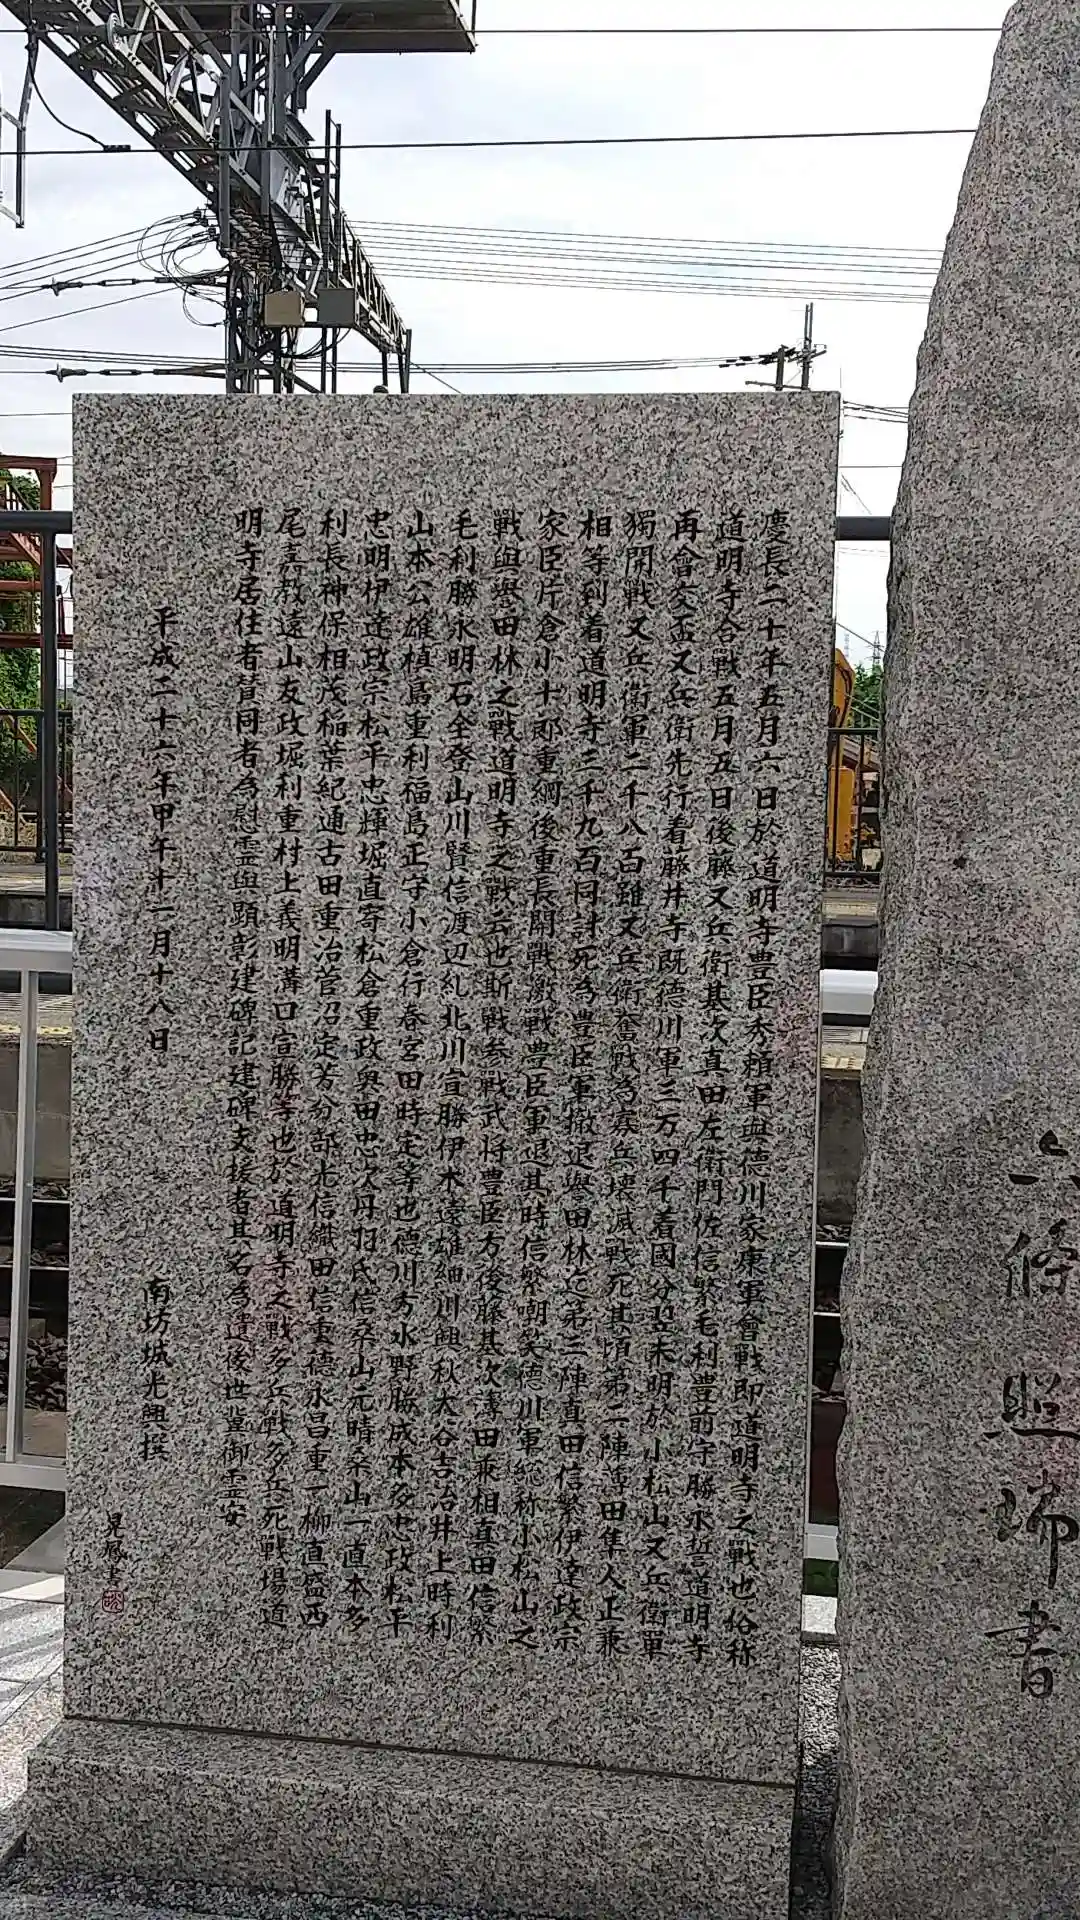 六條照瑞書
慶長二十年五月六日於道明寺豊臣秀頼軍與德川家康軍會戰即道明寺之戰也俗称
道明寺合戰五月五日後藤又兵衛基次真田左衛門佐信繁毛利豊前守勝永誓道明寺
再會交盃又兵衛先行着藤井寺既德川軍三万四千着國分翌未明於小松山又兵衛單
獨開戰又兵衛軍二千八百雖又兵衛奮戰為寡兵壊滅戰死其頃第二陣薄田隼人正兼
相等到着道明寺三千九百同討死為豊臣軍撤退譽田林迄第三陣真田信繁伊達政宗
家臣片倉小十郎重綱後重長開戰激戰豊臣軍退其時信繁嘲笑德川軍総称小松山之
戰與譽田林之戰道明寺之戰云也斯戰参戰武将豊臣方後藤基次薄田兼相真田信繁
毛利勝永明石全登山川賢信渡辺糺北川宣勝伊木遠雄細川興秋大谷吉治井上時利
山本公雄槙島重利福島正守小倉行春宮田時定等也德川方水野勝成本多忠政松平
忠明伊達政宗松平忠輝堀直寄松倉重政奥田忠次丹羽氏信桑山元晴桑山一直本多
利長神保相茂稲葉紀通古田重治菅沼定芳分部光信織田信重德永昌重一柳直盛西
尾嘉教遠山友政堀利重村上義明溝口宣勝等也於道明寺之戰多兵戰多兵死戰場道
明寺居住者賛同者為慰霊與顕彰建碑記建碑支援者其名為遺後世冀御霊安
平成二十六年甲午十一月十八日　南坊城光興撰
晃鳳書